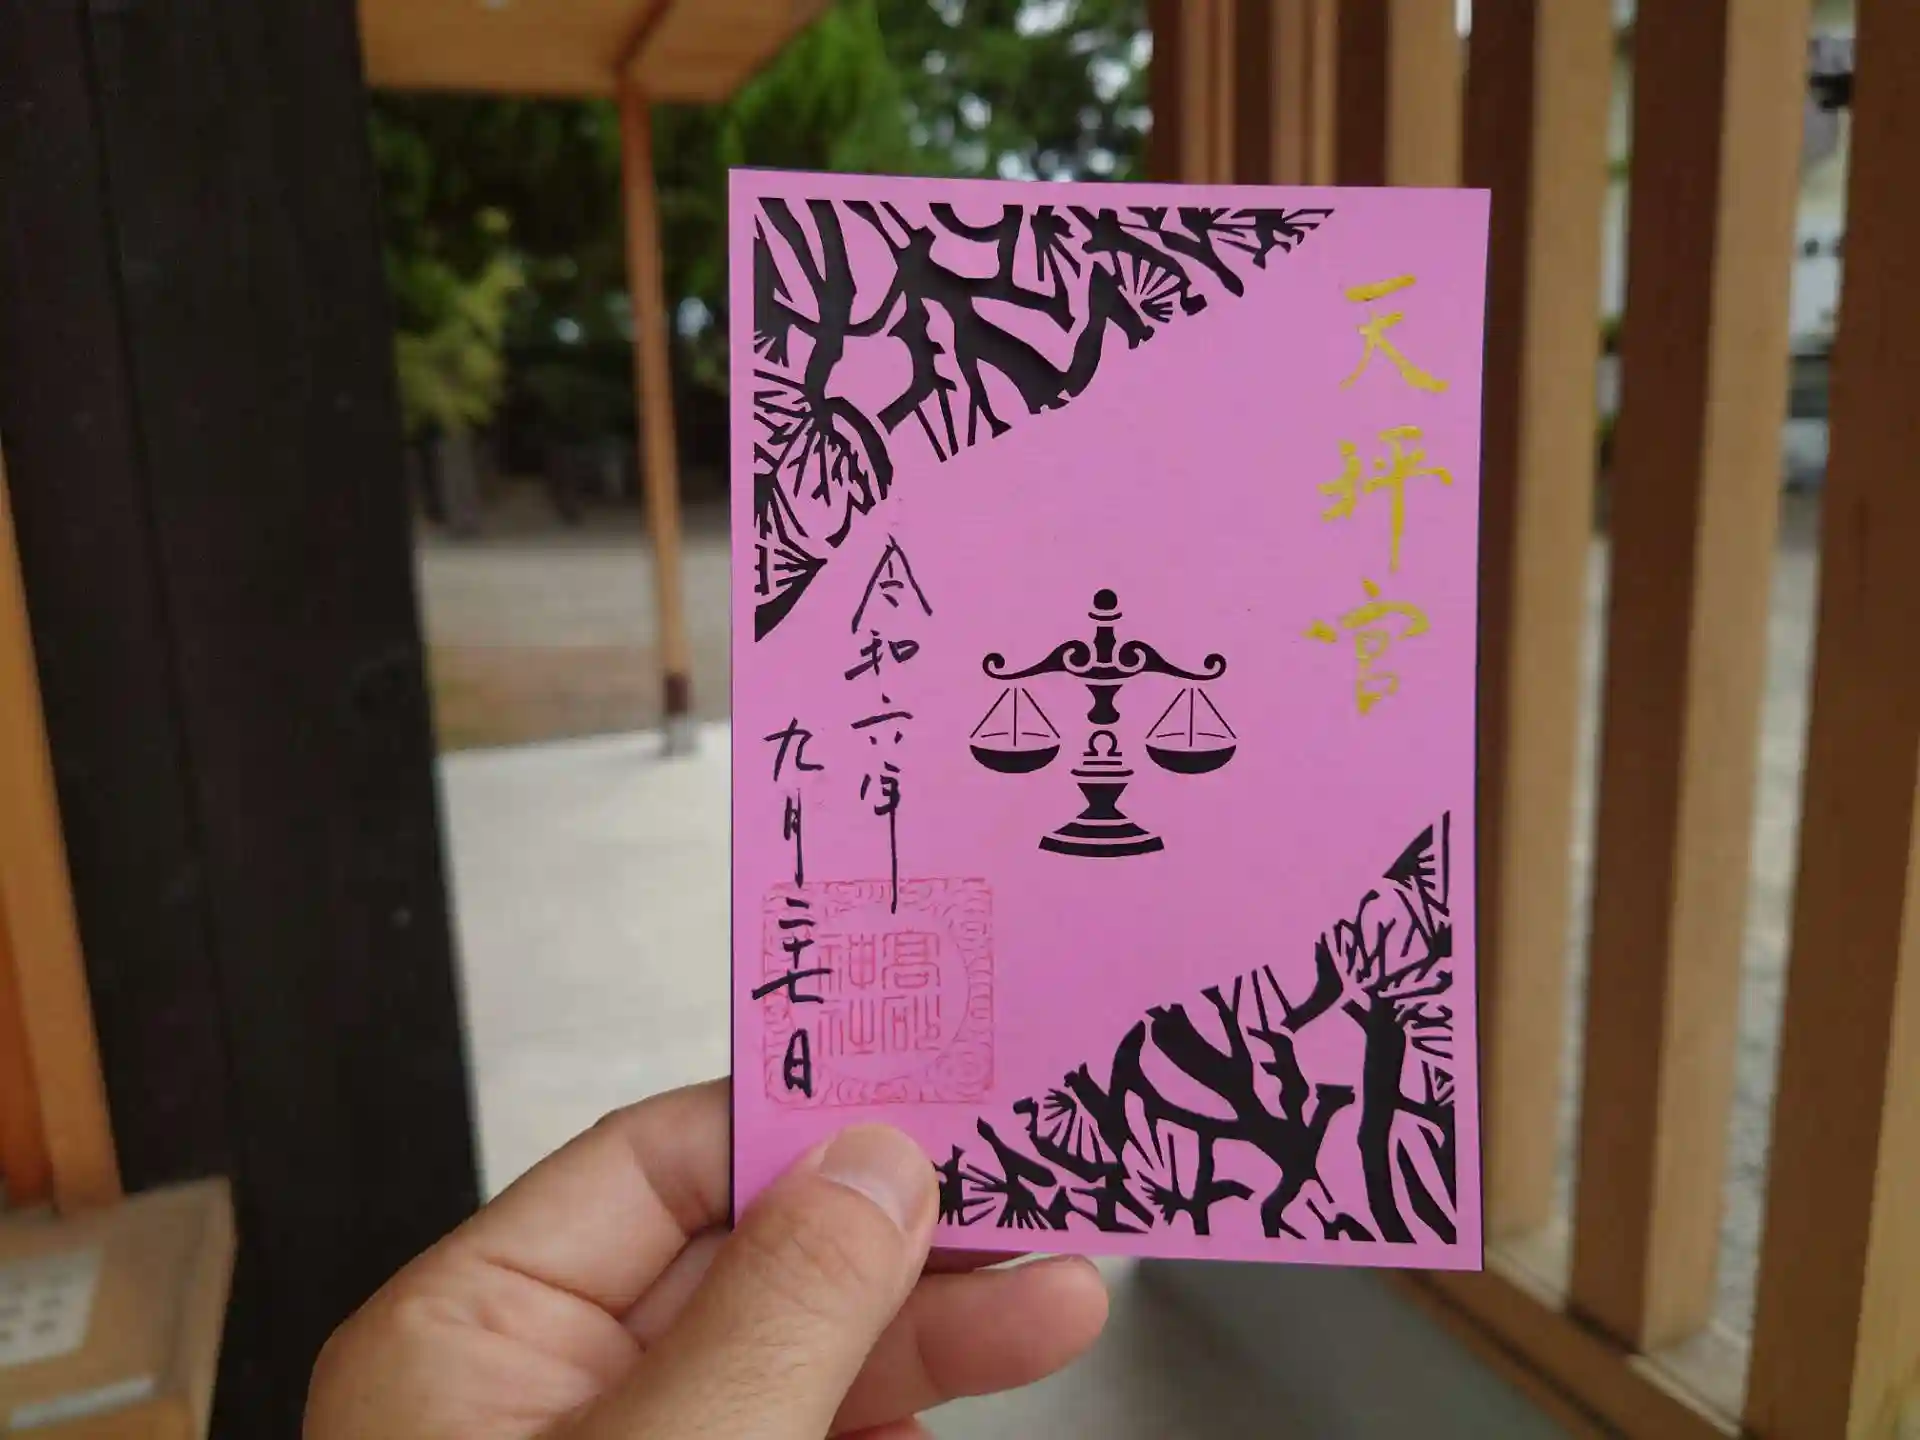 天秤宮
令和六年
九月二十七日
高砂
神社